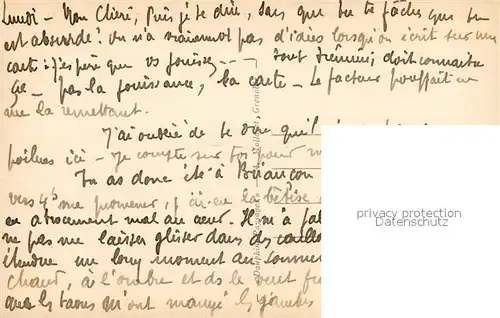 Lundi - Mon Chéri, puis je te dire, sans que tu te fâches que tu
est absurde! On n'a vraiment pas d'idées lorsqu'on écrit sur une
carte : j'espère que vs jouissez --- tout homme, doit connaître
ça - pas la jouissance, la carte - Le facteur pouffait en
me la remettant.
J'ai oublié de te dire qu'il
poilues ici - Je compte sur toi pour
Tu as donc été à Briançon
vers 4h me promener, j'ai eu la bêtise
eu atrocement mal au cœur. Il m'a fal
ne pas me laisser glisser dans des caillo
étendue un long moment au sommet
chaud, à l'ombre et ds le vent fr
que les taons m'ont mangé les jambes
privacy protection
www.ansichtskarten-center.de